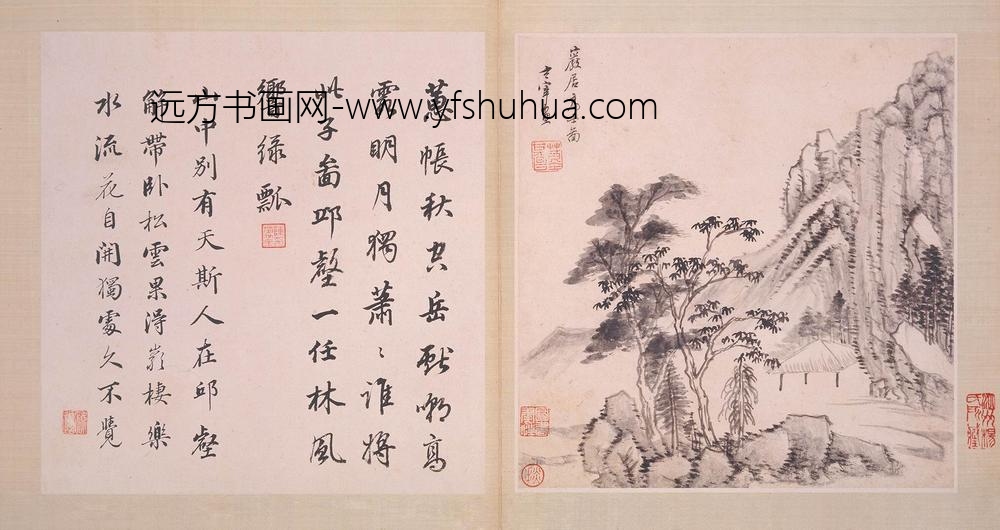 巖居圖
玄宰畫
蕙帳秋空岳獻嘲高
雲明月獨蕭〻誰將
此子啚邱壑一任林風
響綠瓢
山中別有天斯人在邱壑
解帶臥松雲果得巖棲樂
水流花自開獨處久不覺
远方书画网-www.yfshuhua.com